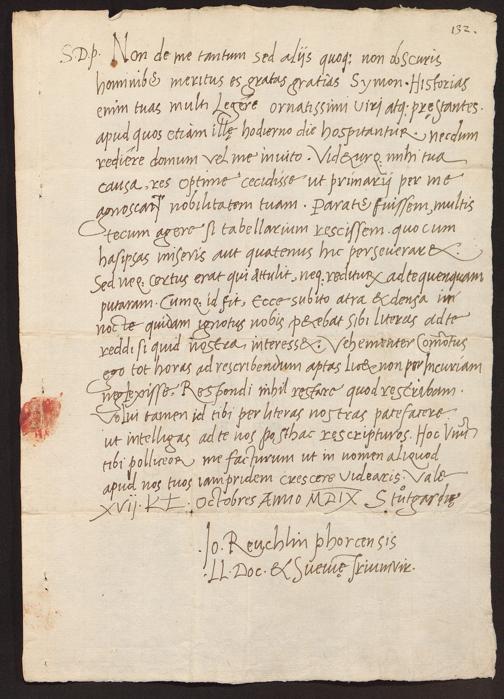 132.
S.D.p. Non de me tantum sed alijs quoq; non obscuris
hominib9 meritus es gratas gratias Symon. Historias
enim tuas multi Legere ornatissimi viri atq; prestantes.
apud quos etiam illę hodierno die hospitantur, necdum
rediere domum vel me invito. Videturq; mihi tua
causa res optime cecidisse ut primarij per me
agnoscant nobilitatem tuam. Parate fuissem, multis
tecum agere si tabellarium rescissem. quocum
has ipsas miseris aut quatenus hic perseveraret.
Sed neq; certus erat qui attulit, neq; rediturum ad te quenquam
putaram. Cumq; id fit, Ecce subito atra & densa in
nocte quidam ignotus nobis petebat sibi literas ad te
reddi si quid nostra interesset. Vehementer commotus
ego tot horas ad rescribendum aptas Luce non per Incuriam
neglexisse. Respondi nihil restare quod rescribam.
Volui tamen id tibi per literas nostras patefacere
ut intelligas ad te nos posthac rescripturos. Hoc unum
tibi polliceor me facturum ut in nomen aliquod
apud nos tuos iam pridem crescere videaris. Vale
XVij. KL. Octobres Anno MDIX Stutgardię
Jo. Reuchlin phorcensis
LL. Doc. & Suevię Triumvir.